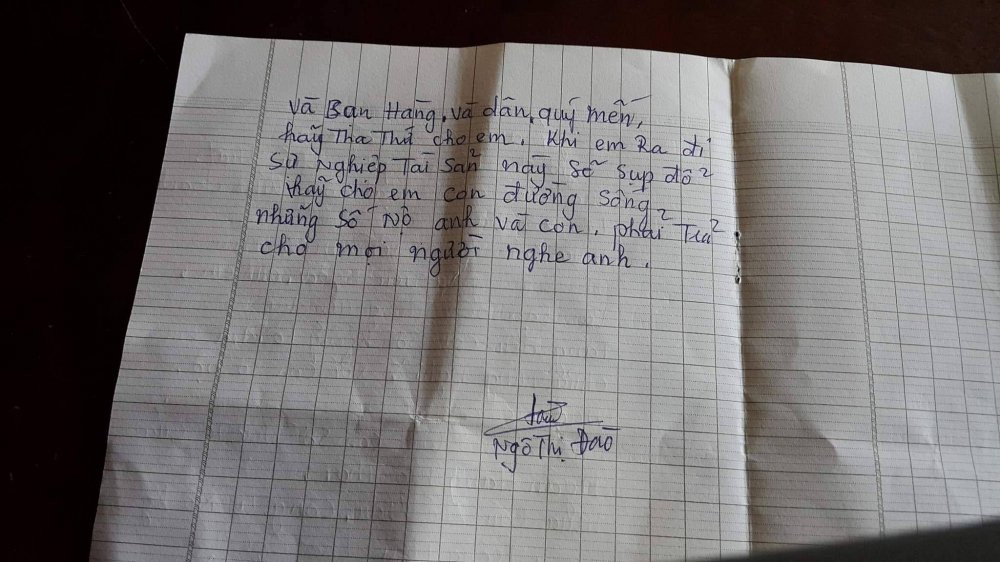 và Bạn Hàng, và dân, quý mến,
hãy Tha Thứ cho em, Khi em Ra đi
Sự Nghiệp Tài Sản này Sẽ Sụp đổ
hãy cho em con đường Sống
những Số Nợ anh và con, phải Trả
cho mọi người nghe anh.
Ngô Thị Đào